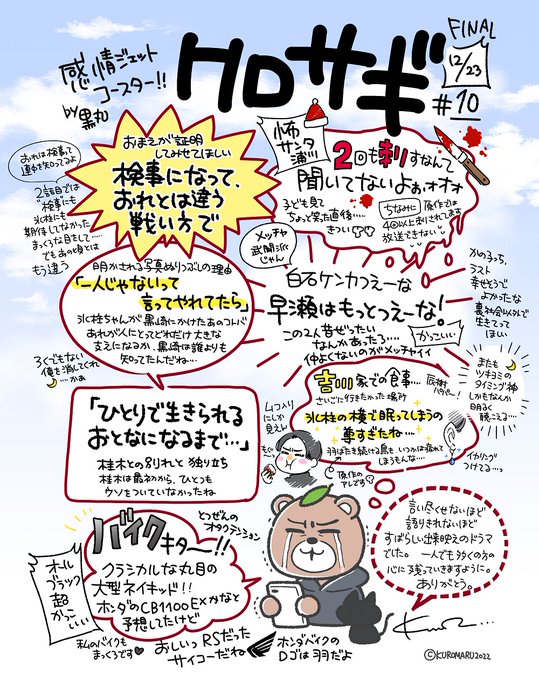 感情ジェット
コースター!!
by黒丸
クロサギ
FINAL
12/23
#10
おまえが証明
してみせてほしい
検事になって、
おれとは違う
戦い方で
おれは検事って
連中を知ってるよ
2話目では
"検事にも
氷柱にも
期待してなかった
まっくろな目をして……
でもあの頃とは
もう違う
怖
サンタ
浦川
2回も刺すなんて
聞いてないよぉォオォ
子ども見て
ちょっと笑た直後…
きつい
ちなみに
原作は
4回以上刺されてます
放送できない
明かされる写真ぬりつぶしの理由
「一人じゃないって
言ってやれてたら」
氷柱ちゃんが黒崎にかけたあのコトバ
あれが人にとってどれだけ大きな
支えになるか、黒崎は誰よりも
知ってたんだね…
ろくでもない
俺を消してくれ
…かぁ
メッチャ
武闘派
じゃん
白石ケンカつえーな
早瀬はもっとつえーな!
この2人昔ぜったい
なんかあったろ…
仲よくないのがメッチャイイ
かっこいい
かの3っち、
ラスト
幸せそうで
よかったな
裏社会以外で
生きてって
ほしい
「ひとりで生きられる
おとなになるまで…」
桂木との別れと独り立ち
桂木は最初から、ひとつも
ウソをついていなかったね
吉川家での食事…
さいごに行きたかった場所
氷柱の横で眠ってしまうの
尊すぎたね…
羽ばたき続ける鳥も いつかは疲れて
しまうもんな…
またも
ツキヨミの
タイミング神
しかもなんか
明るく
聴こえる…
イヤリング
つけてる…
ムコ入り
にしか
見えん
もぐ
原作の
アレだす
バイクキター!!
とつぜんの
オタクテンション
クラシカルな丸目の
大型ネイキッド!!
ホンダのCB1100EXかなと
予想してたけど
オール
ブラック
超
かっこ
いいい
私のバイクも
まっくろです
おしいっRSだった
サイコーだね
ホンダバイクの
ロゴは羽だよ
言い尽くせないほど
語りきれないほど
すばらしい出来映えのドラマ
でした。一人でも多くの方の
心に残っていきますように。
ありがとう。
©KUROMARU2022